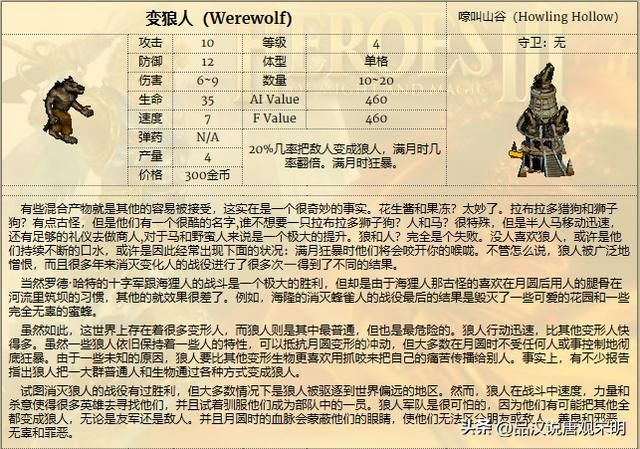 变狼人（Werewolf）
嚎叫山谷（Howling Hollow）
攻击 10 等级 4
守卫：无
防御 12 体型 单格
伤害 6~9 数量 10~20
生命 35 AI Value 460
速度 7 F Value 460
弹药 N/A
20%几率把敌人变成狼人，满月时几
产量 4
率翻倍。满月时狂暴。
价格 300金币
有些混合产物就是其他的容易被接受，这实在是一个很奇妙的事实。花生酱和果冻？太妙了。拉布拉多猎狗和狮子
狗？有点古怪，但是他们有一个很酷的名字,谁不想要一只拉布拉多狮子狗？人和马？很特殊，但是半人马移动迅速，
还有足够的礼仪去做商人,对于马和野蛮人来说是一个极大的提升。狼和人？完全是个失败。没人喜欢狼人，或许是他
们持续不断的口水，或许是因此经常出现下面的状况：满月狂暴时他们将会咬开你的喉咙。不管怎么说，狼人被广泛地
憎恨，而且很多年来消灭变化人的战役进行了很多次一得到了不同的结果。
当然罗德·哈特的十字军跟海狸人的战斗是一个极大的胜利，但却是由于海狸人那古怪的喜欢在月圆后用人的腿骨在
河流里筑坝的习惯，其他的就效果很差了。例如，海隆的消灭蜂雀人的战役最后的结果是毁灭了一些可爱的花园和一些
完全无辜的蜜蜂。
虽然如此，这世界上存在着很多变形人，而狼人则是其中最普通，但也是最危险的。狼人行动迅速，比其他变形人快
得多。虽然一些狼人依旧保持着一些人的特性，可以抵抗月圆变形的冲动，但大多数在月圆时不受任何人或事控制地彻
底狂暴。由于一些未知的原因，狼人要比其他变形生物更喜欢用抓咬来把自己的痛苦传播给别人。事实上，有不少报告
指出狼人把一大群普通人和生物通过各种方式变成狼人。
试图消灭狼人的战役有过胜利，但大多数情况下是狼人被驱逐到世界偏远的地区。然而，狼人在战斗中速度，力量和
杀意使得很多英雄去寻找他们，并且试着驯服他们成为部队中的一员。狼人军队是很可怕的，因为他们有可能把其他全
都变成狼人，无论是友军还是敌人。并且月圆时的血脉会蒙蔽他们的眼睛，使他们无法区分朋友或敌人，善良和邪恶，
无辜和罪恶。
头条 @品汉说唐观宋明